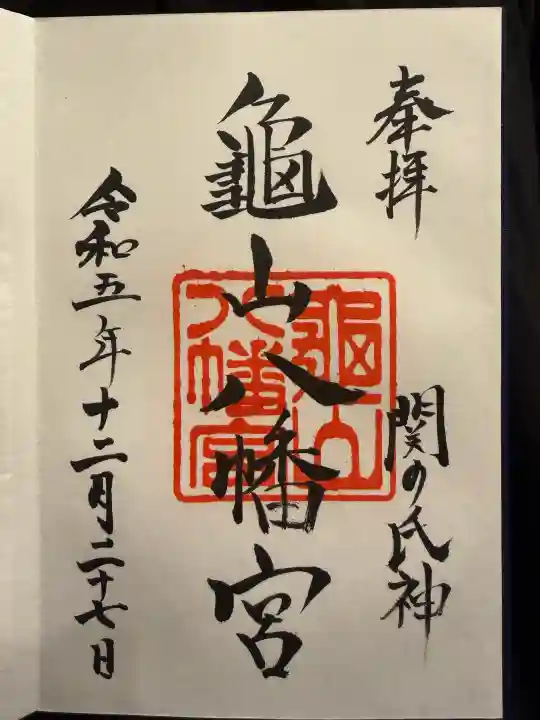 奉拝
関の氏神
龜山八幡宮
龜山
八幡宮
令和五年十二月二十七日